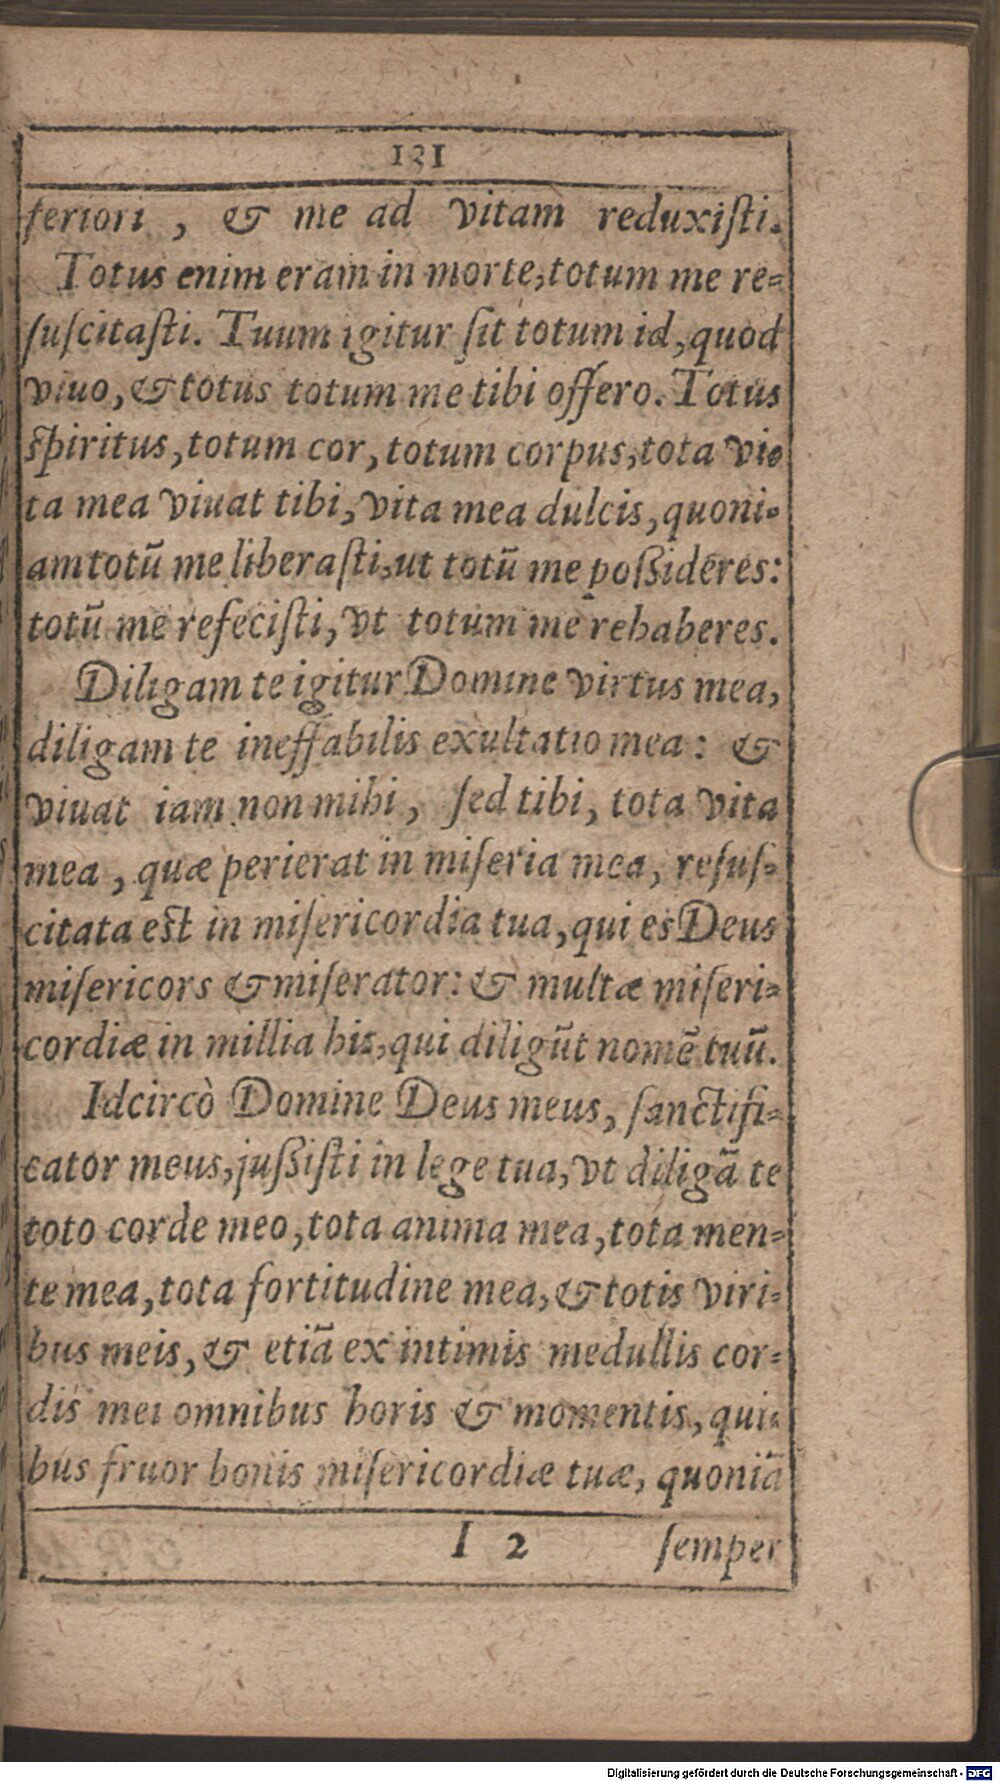 131
feriori, & me ad vitam reduxiſti.
Totus enim eram in morte, totum me re-
ſuſcitaſti. Tuum igitur ſit totum id, quod
viuo, & totus totum me tibi offero. Totus
ſpiritus, totum cor, totum corpus, tota vi-
ta mea viuat tibi, vita mea dulcis, quoni-
am totū me liberaſti, ut totū me poſsideres:
totū me refeciſti, vt totum me rehaberes.
Diligam te igitur Domine virtus mea,
diligam te ineffabilis exultatio mea: &
viuat iam non mihi, ſed tibi, tota vita
mea, quæ perierat in miſeria mea, reſuſ-
citata eſt in miſericordia tua, qui es Deus
miſericors & miſerator: & multæ miſeri-
cordiæ in millia his, qui diligūt nomē tuū.
Idcircò Domine Deus meus, ſanctifi-
cator meus, juſsiſti in lege tua, vt diligā te
toto corde meo, tota anima mea, tota men-
te mea, tota fortitudine mea, & totis viri-
bus meis, & etiā ex intimis medullis cor-
dis mei omnibus horis & momentis, qui-
bus fruor bonis miſericordiæ tuæ, quoniā
I 2 ſemper
Digitalisierung gefördert durch die Deutsche Forschungsgemeinschaft - DFG